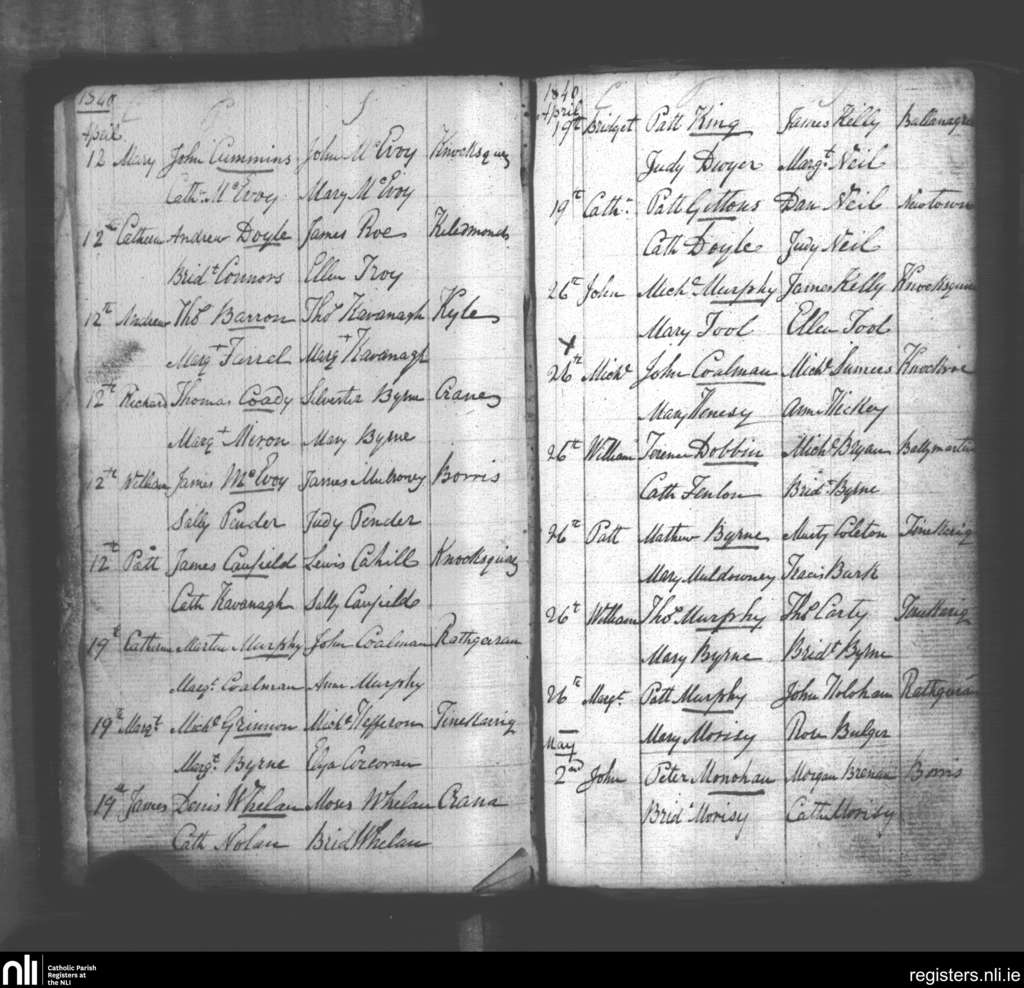 1840
April
12 Mary John Cummins John McEvoy Knocksquey
Cathn McEvoy Mary McEvoy
12th Catheren Andrew Doyle James Roe Kiledmond
Bridt Connors Ellen Troy
12th Andrew Thos Barron Thos Kavanagh Kyle
Margt Firrel Margt Kavanagh
12th Richard Thomas Coady Silvester Byrne Crane
Margt Meron Mary Byrne
12th William James McEvoy James Mulroney Borris
Sally Pender Judy Pender
12th Patt James Caufield Lewis Cahill Knocksquire
Cath Kavanagh Sally Caufield
19th Catherine Martin Murphy John Coalman Rathgaran
Margt Coalman Ann Murphy
19th Margt Michl Grinnon Michl Hefferon Tinekarig
Margt Byrne Elya Corcoran
19th James Denis Whelan Moses Whelan Crana
Cath Nolan Brid Whelan
1840
April
19th Bridget Patt King James Kelly
Judy Dwyer Margt Neil
19th Cathn Patt Gittons Dan Neil Newtown
Cath Doyle Judy Neil
26th John Michl Murphy James Kelly Knocksquire
Mary Tool Ellen Tool
X
26th Michl John Coalman Michl
Mary Henesy Ann Hickey
26th William Terence Dobbin Michl Bryan Ballymartin
Cath Fenlon Bridt Byrne
26th Patt Mathew Byrne Murty Coleton Tinekarig
Mary Muldowney Burk
26th William Thos Murphy Thos Carty Tinekarig
Mary Byrne Bridt Byrne
26th Margt Patt Murphy John Holohan Rathgaran
Mary Morisy Rose Bulger
May
2nd John Peter Monohan Morgan Brenan Borris
Bridt Morisy Cathn Morisy
nli
Catholic Parish
Registers at
the NLI
registers.nli.ie